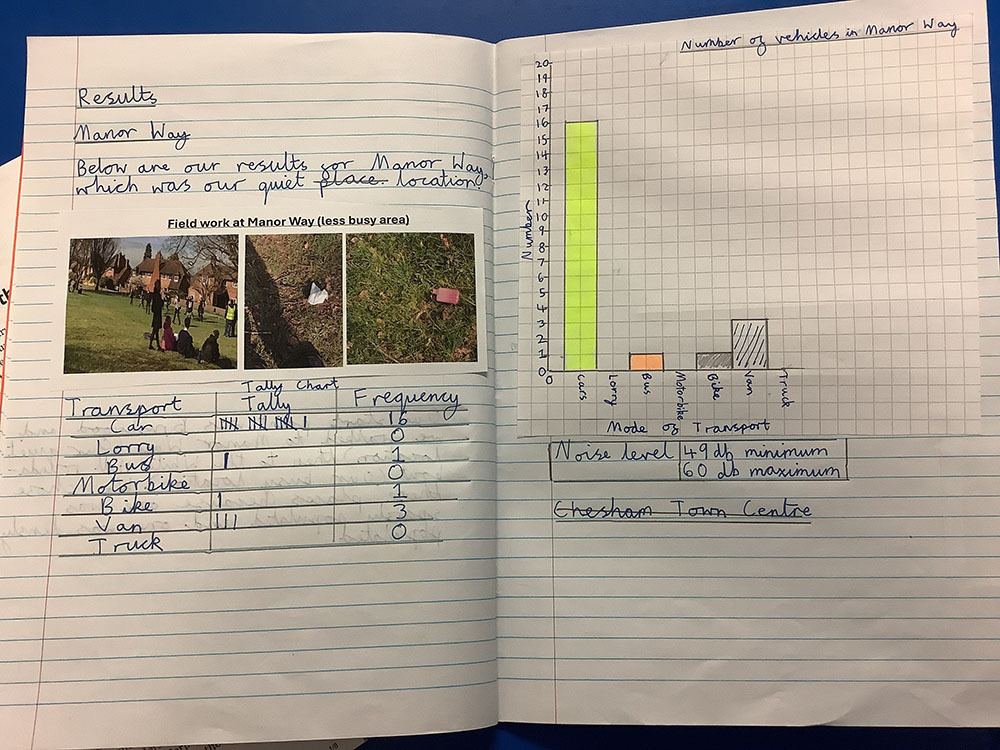 Results
Manor Way
Below are our results for Manor Way,
which was our quiet place location.
Field work at Manor Way (less busy area)
Tally Chart
Transport Tally Frequency
Car 𝍸 𝍸 𝍸 I 16
Lorry 0
Bus I 1
Motorbike 0
Bike I 1
Van III 3
Truck 0
Number of vehicles in Manor Way
20
19
18
17
16
15
14
13
12
11
10
9
8
7
6
5
4
3
2
1
0
Number
Cars Lorry Bus Motorbike Bike Van Truck
Mode of Transport
Noise level 49 db minimum
60 db maximum
Chesham Town Centre